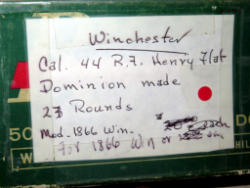 Winchester
Cal. 44 R.F. Henry Flat
Dominion made
27 Rounds
Mod. 1866 Win.
For 1866 Win or
50
W